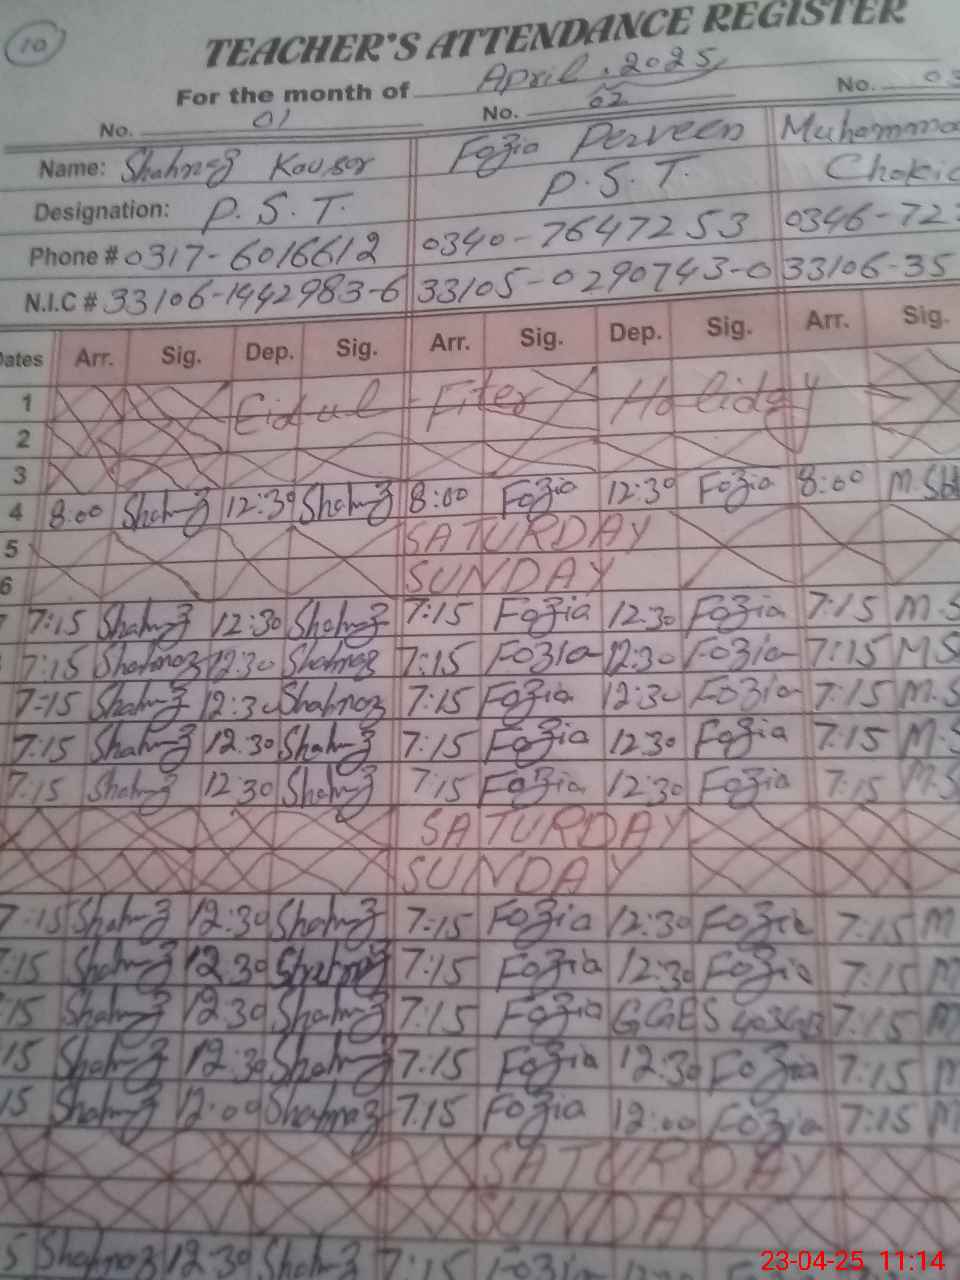 10
TEACHER'S ATTENDANCE REGISTER
For the month of April. 2025
No. 01 No. 02 No. 03
Name: Shahnaz Kausar Fozia Perveen Muhamma
Designation: P.S.T. P.S.T. Chokid
Phone # 0317-6016612 0340-7647253 0346-72
N.I.C # 33106-1442983-6 33105-0290743-0 33106-35
Dates Arr. Sig. Dep. Sig. Arr. Sig. Dep. Sig. Arr. Sig.
1 Eid ul Fiter Holiday
2
3
4 8:00 Shahnaz 12:30 Shahnaz 8:00 Fozia 12:30 Fozia 8:00 M.Sh
5 SATURDAY
6 SUNDAY
7 7:15 Shahnaz 12:30 Shahnaz 7:15 Fozia 12:30 Fozia 7:15 M.S
7:15 Shahnaz 12:30 Shahnaz 7:15 Fozia 12:30 Fozia 7:15 M.S
7:15 Shahnaz 12:30 Shahnaz 7:15 Fozia 12:30 Fozia 7:15 M.S
7:15 Shahnaz 12:30 Shahnaz 7:15 Fozia 12:30 Fozia 7:15 M.S
7:15 Shahnaz 12:30 Shahnaz 7:15 Fozia 12:30 Fozia 7:15 M.S
SATURDAY
SUNDAY
7:15 Shahnaz 12:30 Shahnaz 7:15 Fozia 12:30 Fozia 7:15 M
:15 Shahnaz 12:30 Shahnaz 7:15 Fozia 12:30 Fozia 7:15 M
:15 Shahnaz 12:30 Shahnaz 7:15 Fozia GGES 403GB 7:15 M
15 Shahnaz 12:30 Shahnaz 7:15 Fozia 12:30 Fozia 7:15 M
15 Shahnaz 12:00 Shahnaz 7:15 Fozia 12:00 Fozia 7:15 M
SATURDAY
SUNDAY
5 Shahnaz 12:30 Shahnaz 7:15 Fozia
23-04-25 11:14